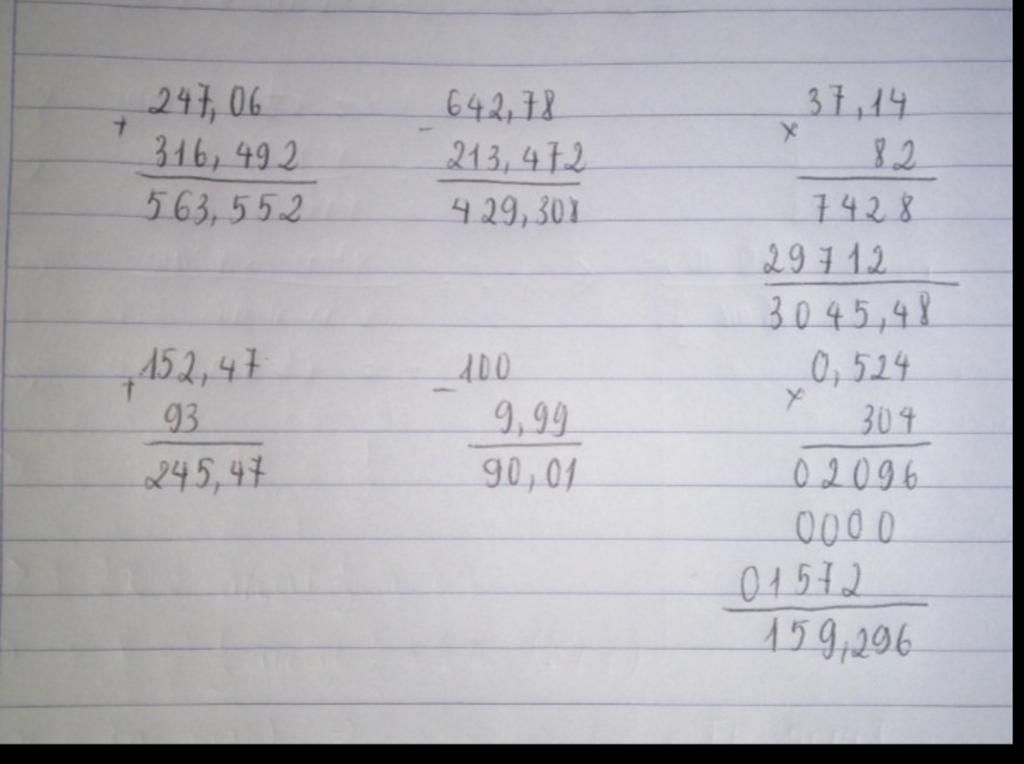 247,06
+
316,492
563,552
642,78
-
213,472
429,308
37,14
x
82
7428
29712
3045,48
152,47
+
93
245,47
100
-
9,99
90,01
0,524
x
304
02096
0000
01572
159,296